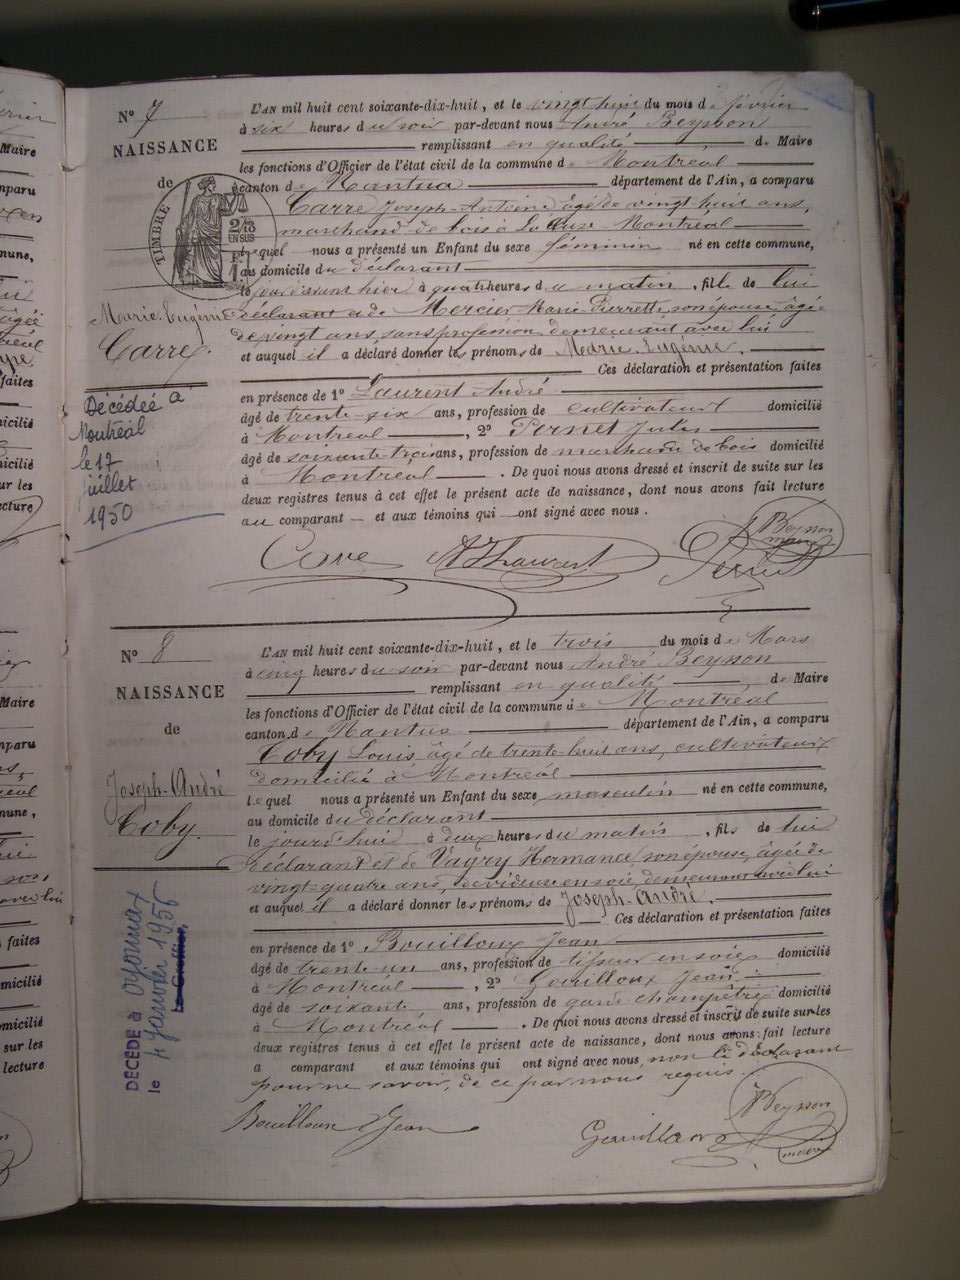 N° 7
NAISSANCE
de
TIMBRE
Marie-Eugénie
Carre
Décédée à
Montréal
le 17
juillet
1950
L'AN mil huit cent soixante-dix-huit, et le vingt huit du mois de février
à six heures du soir par-devant nous André Beysson
remplissant en qualité de Maire
les fonctions d'Officier de l'état civil de la commune de Montréal
canton de Nantua département de l'Ain, a comparu
Carre Joseph-Antoine âgé de vingt huit ans,
marchand de bois à Montréal
lequel nous a présenté un Enfant du sexe féminin né en cette commune,
au domicile du déclarant
le hier à quatre heures du matin, fille de lui
déclarant et de Mercier Marie Pierrette, son épouse, âgée
de vingt ans, sans profession, demeurant avec lui
et auquel il a déclaré donner les prénoms de Marie-Eugénie.
Ces déclaration et présentation faites
en présence de 1° Laurent André
âgé de trente-six ans, profession de cultivateur domicilié
à Montréal, 2° Pernet Jules
âgé de soixante-trois ans, profession de marchand de bois domicilié
à Montréal. De quoi nous avons dressé et inscrit de suite sur les
deux registres tenus à cet effet le présent acte de naissance, dont nous avons fait lecture
au comparant et aux témoins qui ont signé avec nous.
Carre Laurent Pernet Beysson
maire
N° 8
NAISSANCE
de
Joseph-André
Coby.
DÉCÉDÉ à Oyonnax
le 4 janvier 1956
Le Greffier,
L'AN mil huit cent soixante-dix-huit, et le trois du mois de Mars
à cinq heures du soir par-devant nous André Beysson
remplissant en qualité de Maire
les fonctions d'Officier de l'état civil de la commune de Montréal
canton de Nantua département de l'Ain, a comparu
Coby Louis, âgé de trente huit ans, cultivateur
domicilié à Montréal
lequel nous a présenté un Enfant du sexe masculin né en cette commune,
au domicile du déclarant
le jourd'hui à deux heures du matin, fils de lui
déclarant et de Vagry Hermance, son épouse, âgée de
vingt-quatre ans, dévideuse en soie, demeurant avec lui
et auquel il a déclaré donner les prénoms de Joseph-André.
Ces déclaration et présentation faites
en présence de 1° Bouilloux Jean
âgé de trente-un ans, profession de tisseur en soie domicilié
à Montréal, 2° Gouilloux Jean
âgé de soixante ans, profession de garde champêtre domicilié
à Montréal. De quoi nous avons dressé et inscrit de suite sur les
deux registres tenus à cet effet le présent acte de naissance, dont nous avons fait lecture
a comparant et aux témoins qui ont signé avec nous, non le déclarant
pour ne savoir, de ce par nous requis.
Bouilloux Jean Gouilloux Beysson
maire